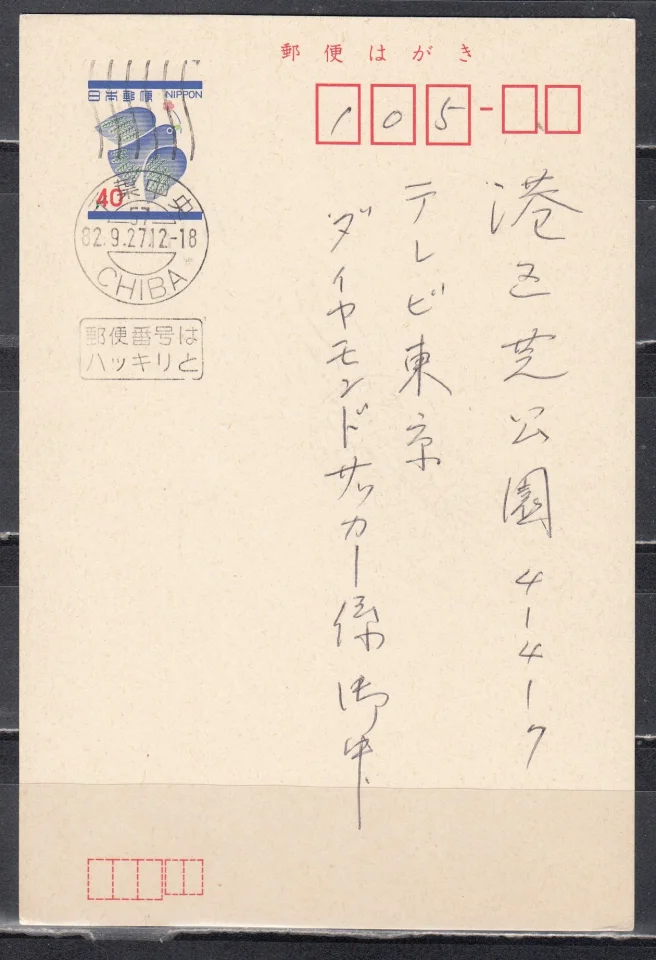 郵便はがき
日本郵便 NIPPON
40
105
港区芝公園4-4-7
テレビ東京
ダイヤモンドサッカー係御中
千葉中央
57
82.9.27.12-18
CHIBA
郵便番号は
ハッキリと